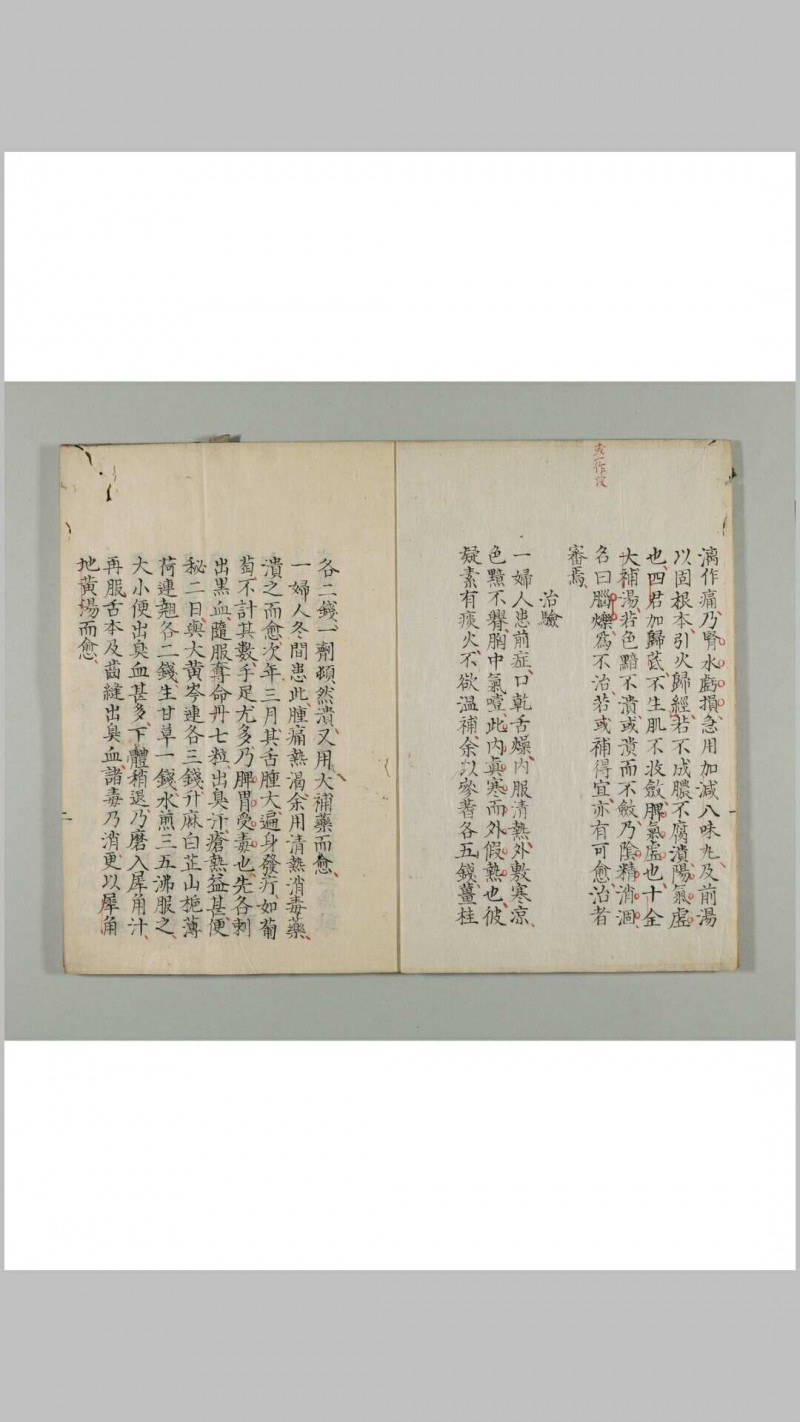 漓作痛乃腎水虧損急用加減八味丸及前湯
以固根本引火歸經若不成膿不腐潰陽氣虛
也四君加歸芪不生肌不收斂脾氣虛也十全
大補湯若色黯不潰或潰而不斂乃陰精消涸
名曰腦爍為不治若或補得宜亦有可愈治者
審焉
治驗
一婦人患前症口乾舌燥內服清熱外敷寒涼
色黯不臖胸中氣噎此內真寒而外假熱也彼
疑素有痰火不欲溫補余以參芪各五錢薑桂
各二錢一劑頓然潰又用大補藥而愈
一婦人冬間患此腫痛熱渴余用清熱消毒藥
潰之而愈次年三月其舌腫大遍身發疔如葡
萄不計其數手足尤多乃脾胃受毒也先各刺
出黑血隨服奪命丹七粒出臭汁瘡熱益甚便
秘二日與大黃芩連各三錢升麻白芷山梔薄
荷連翹各二錢生甘草一錢水煎三五沸服之
大小便出臭血甚多下體稍退乃磨入犀角汁
再服舌本及齒縫出臭血諸毒乃消更以犀角
地黃湯而愈